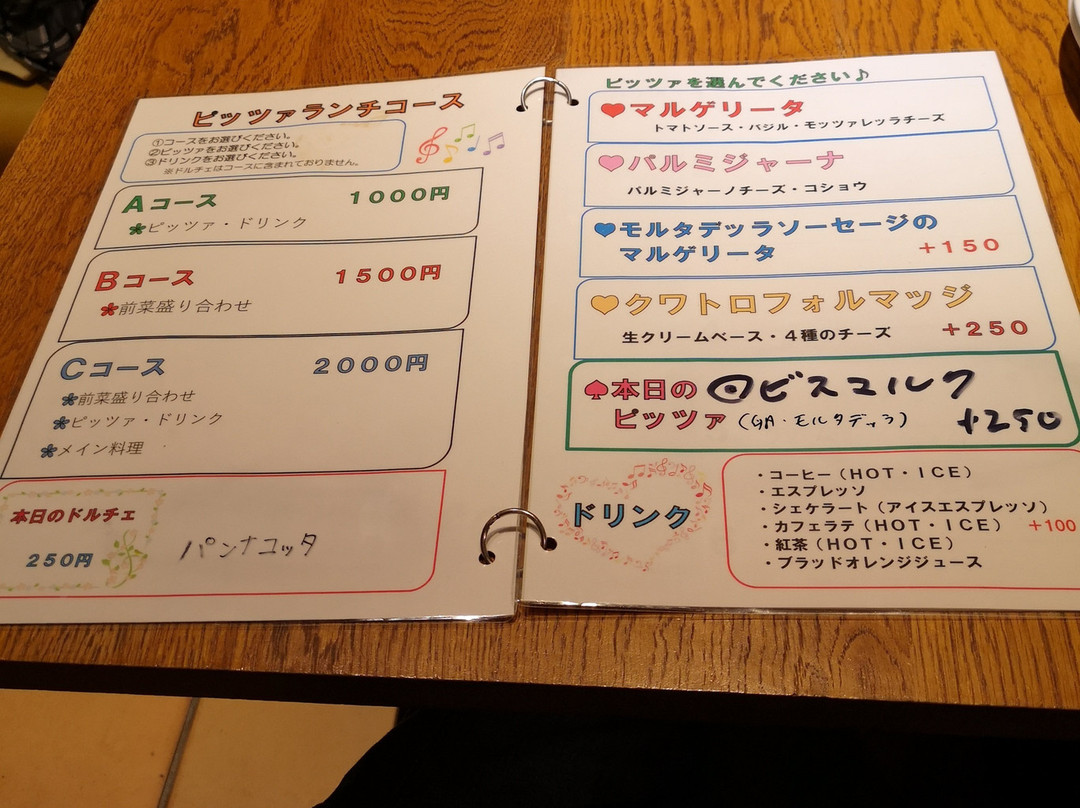 ピッツァランチコース
①コースをお選びください。
②ピッツァをお選びください。
③ドリンクをお選びください。
※ドルチェはコースに含まれておりません。
Aコース 1000円
ピッツァ・ドリンク
Bコース 1500円
前菜盛り合わせ
Cコース 2000円
前菜盛り合わせ
ピッツァ・ドリンク
メイン料理
本日のドルチェ
250円 パンナコッタ
ピッツァを選んでください♪
マルゲリータ
トマトソース・バジル・モッツァレッラチーズ
パルミジャーナ
パルミジャーノチーズ・コショウ
モルタデッラソーセージの
マルゲリータ +150
クワトロフォルマッジ
生クリームベース・4種のチーズ +250
本日の ビスマルク
ピッツァ (GA・モルタデッラ) +250
ドリンク
・コーヒー(HOT・ICE)
・エスプレッソ
・シェケラート(アイスエスプレッソ)
・カフェラテ(HOT・ICE) +100
・紅茶(HOT・ICE)
・ブラッドオレンジジュース